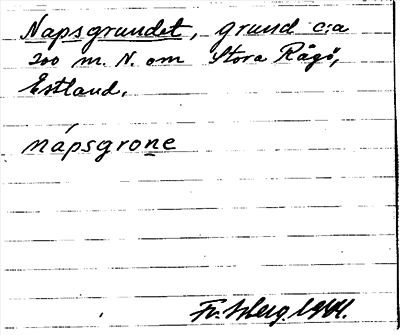 Napsgrundet, grund c:a
200 m. N. om Stora Rågö,
Estland.
nápsgrone
Fr. 1941.